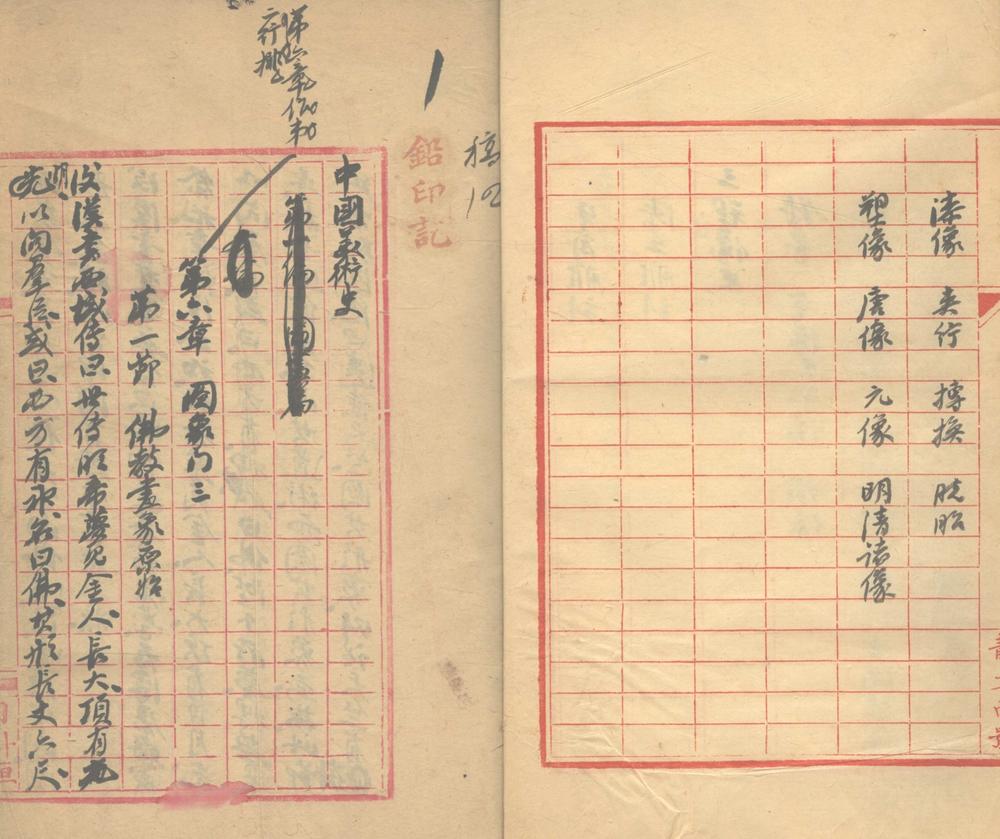 漆像 夾紵 摶換 脱胎
塑像 唐像 元像 明清諸像
稿
鉛印記
中國美術史
第六章 圖象门三
第一節 佛教畫象原始
後漢書西域传曰世传明帝夢見金人長大頂有光
明以问羣臣或曰西方有神名曰佛其形長丈六尺